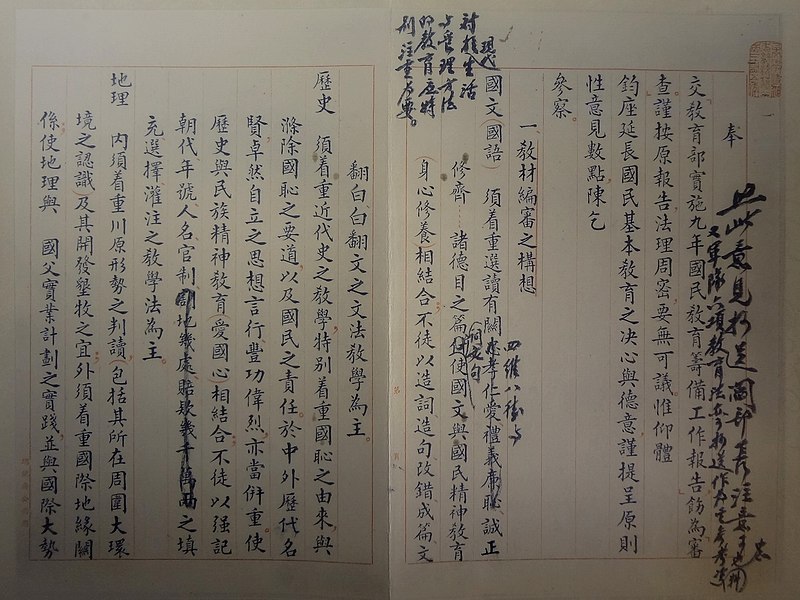 奉
交教育部實施九年國民教育籌備工作報告飭為審
查謹按原報告法理周密要無可議惟仰體
鈞座延長國民基本教育之決心與德意謹提呈原則
性意見數點陳乞
參察。
一、教材編審之構想
國文(國語) 須着重選讀有關忠孝仁愛禮義廉恥誠正
四維八德與
修齊……諸德目之篇 使國文與國民精神教育
(身心修養)相結合不徒以造詞造句改錯成篇文
現代
對於生活
與管理方法
的教育應特
別注重為要。
翻白、白翻文之文法教學為主。
歷史 須着重近代史之教學特別着重國恥之由來,與
滌除國恥之要道,以及國民之責任,於中外歷代名
賢卓然自立之思想言行豐功偉烈,亦當併重。使
歷史與民族精神教育(愛國心)相結合,不徒以强記
朝代年號、人名官制、割地幾處賠欵幾千萬兩之填
充選擇灌注之教學法為主。
地理 內須着重川原形勢之判讀(包括其所在周圍大環
境之認識及其開發墾牧之宜,外須着重國際地緣關
係使地理與 國父實業計劃之實踐並與國際大勢